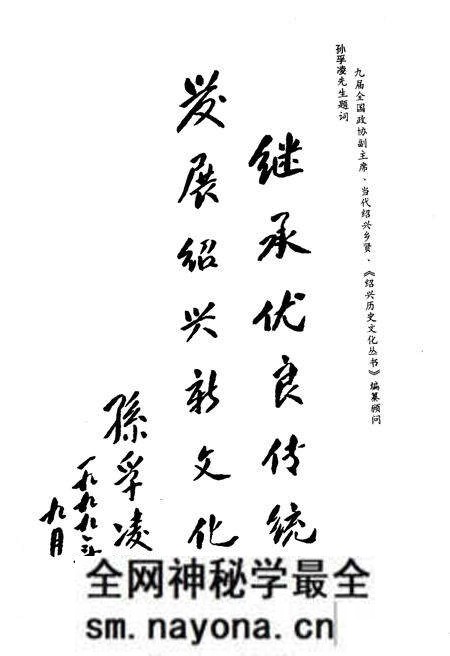 九届全国政协副主席、当代绍兴乡贤、《绍兴历史文化丛书》编纂顾问
孙孚凌先生题词
继承优良传统
发展绍兴新文化
孫孚凌
一九九九年
九月
全网神秘学最全
sm.nayona.cn